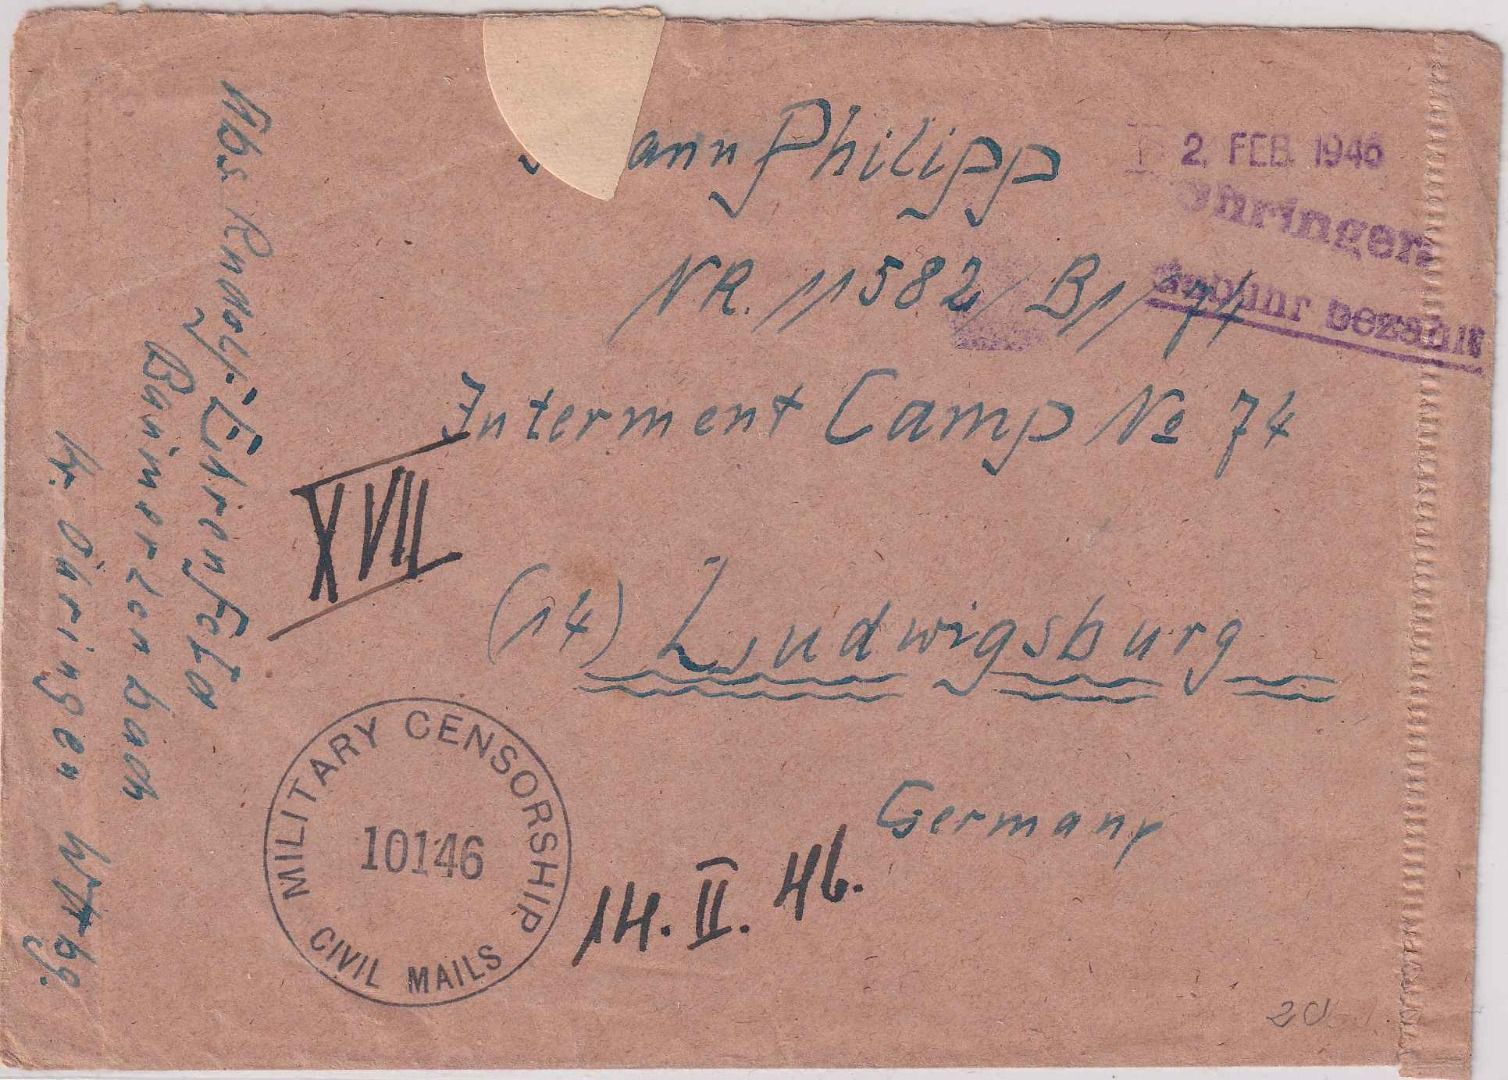 ann Philipp
2. FEB. 1946
Öhringen
Gebühr bezahlt
NR. 11582/B1/74
Interment Camp No 74
XVII
(14) Ludwigsburg
Germany
MILITARY CENSORSHIP
10146
CIVIL MAILS
14. II. 46.
Abs. Rudolf Ehrenfeld
kr. Öhringen Wttbg.